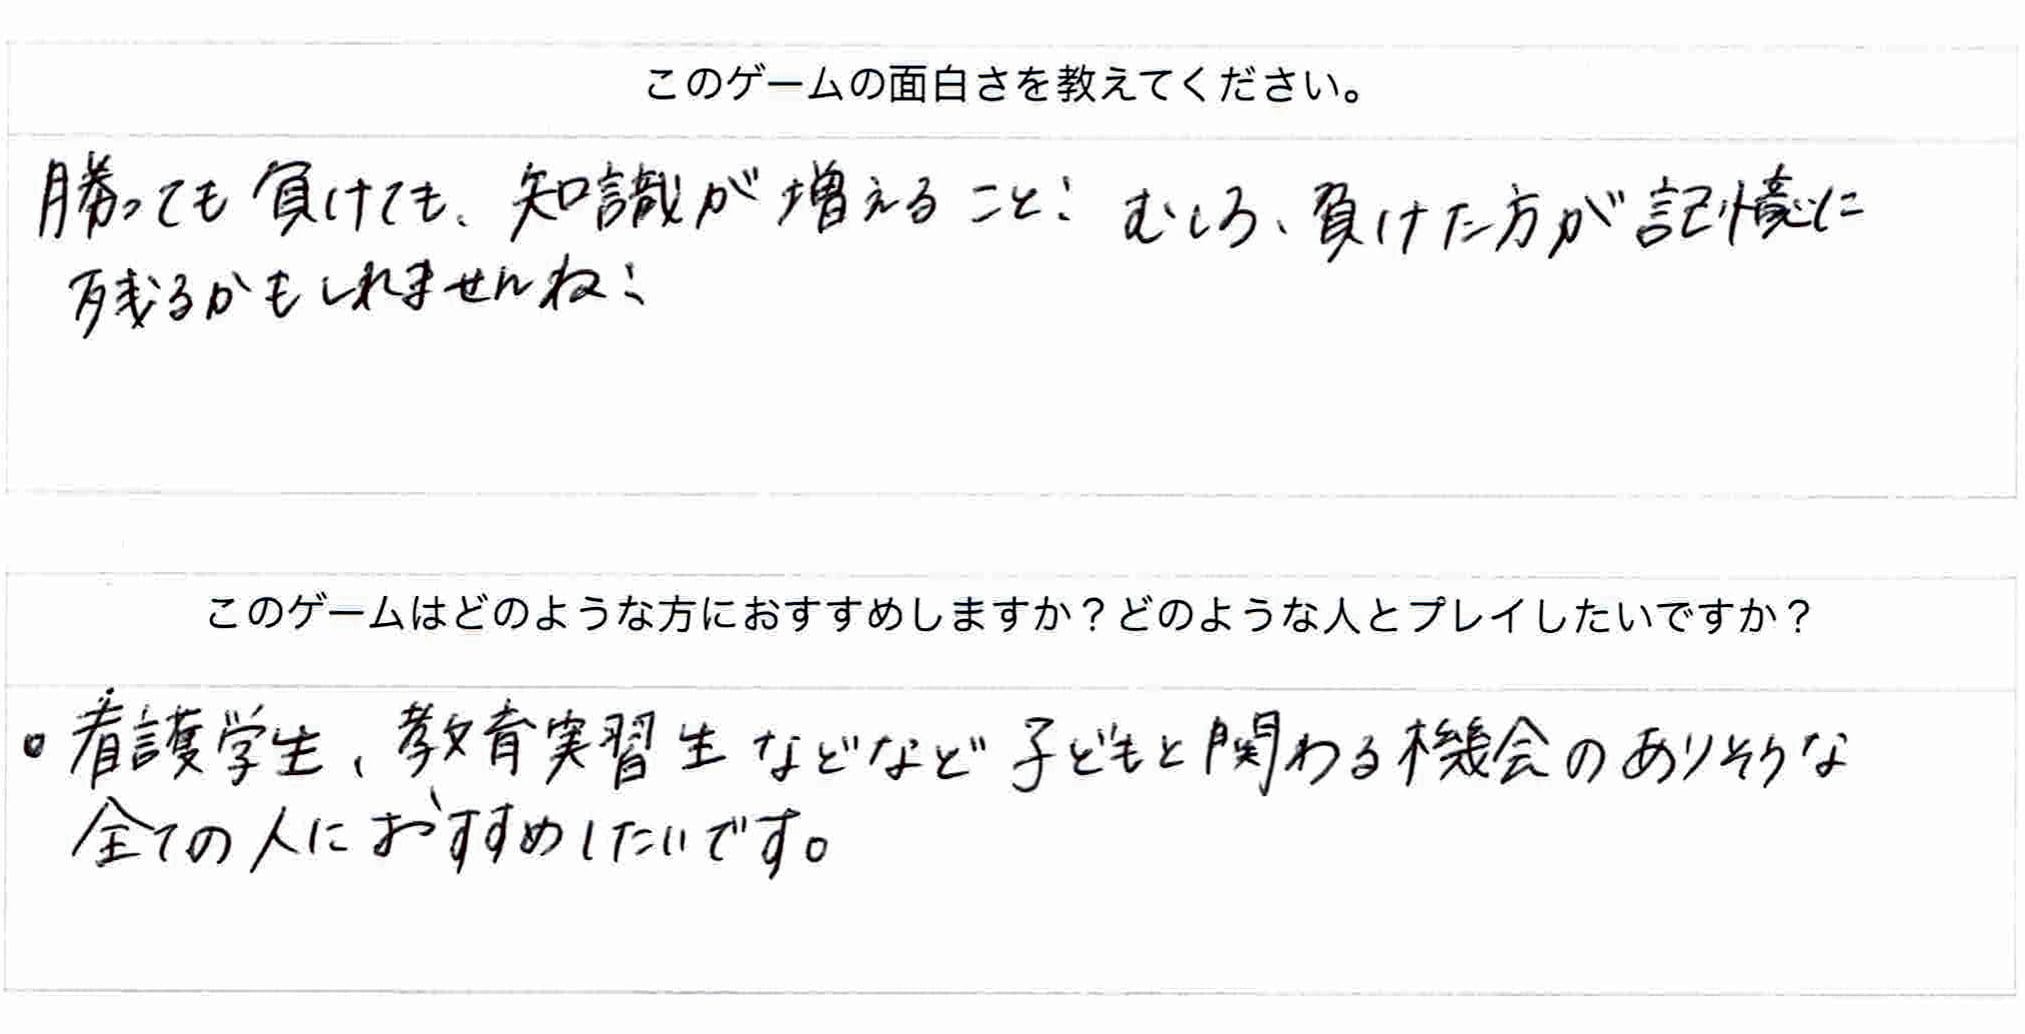 このゲームの面白さを教えてください。
勝っても負けても、知識が増えること! むしろ、負けた方が記憶に
残るかもしれませんね!
このゲームはどのような方におすすめしますか？どのような人とプレイしたいですか？
・看護学生、教育実習生などなど子どもと関わる機会のありそうな
全ての人におすすめしたいです。